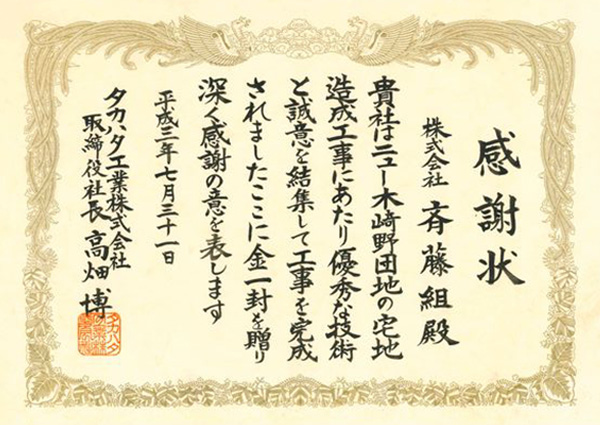 感謝状
株式会社 斉藤組殿
貴社はニュー木﨑野団地の宅地
造成工事にあたり優秀な技術
と誠意を結集して工事を完成
されましたここに金一封を贈り
深く感謝の意を表します
平成三年七月三十一日
タカハタ工業株式会社
取締役社長 高畑 博